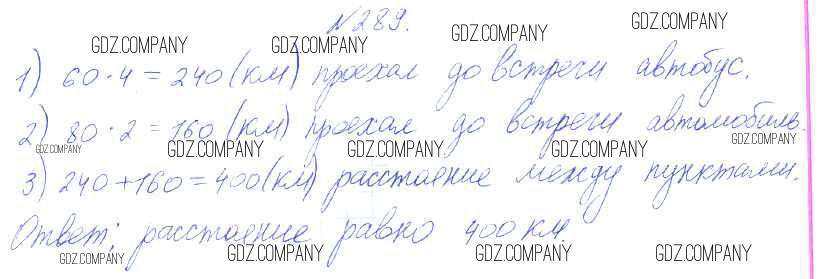 №289.
GDZ.COMPANY GDZ.COMPANY GDZ.COMPANY GDZ.COMPANY
1) 60·4=240(км) проехал до встречи автобус.
2) 80·2=160(км) проехал до встречи автомобиль.
GDZ.COMPANY GDZ.COMPANY GDZ.COMPANY GDZ.COMPANY GDZ.COMPANY
3) 240+160=400(км) расстояние между пунктами.
Ответ: расстояние равно 400 км.
GDZ.COMPANY GDZ.COMPANY GDZ.COMPANY GDZ.COMPANY